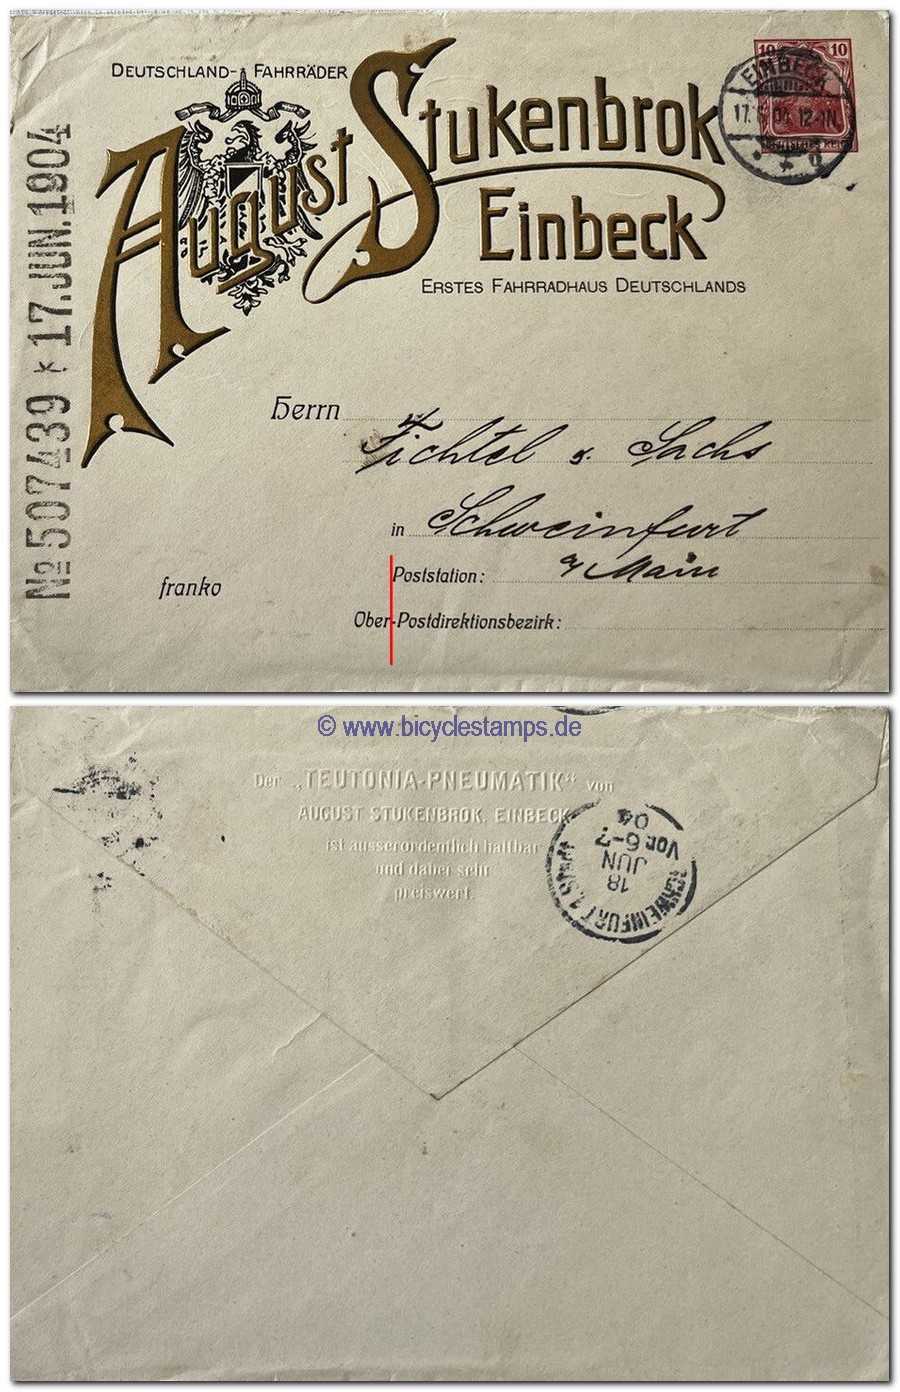 DEUTSCHLAND-FAHRRÄDER
August Stukenbrok
Einbeck
ERSTES FAHRRADHAUS DEUTSCHLANDS
10 10
EINBECK
No 507439 * 17.JUN.1904
Herrn
Fichtel u. Sachs
in Schweinfurt
Poststation: a/ Main
franko
Ober-Postdirektionsbezirk:
© www.bicyclestamps.de
Der „TEUTONIA-PNEUMATIK" von
AUGUST STUKENBROK, EINBECK
ist ausserordentlich haltbar
und daher sehr
preiswert.
SCHWEINFURT 1
18
JUN
Vor. 6-7
04